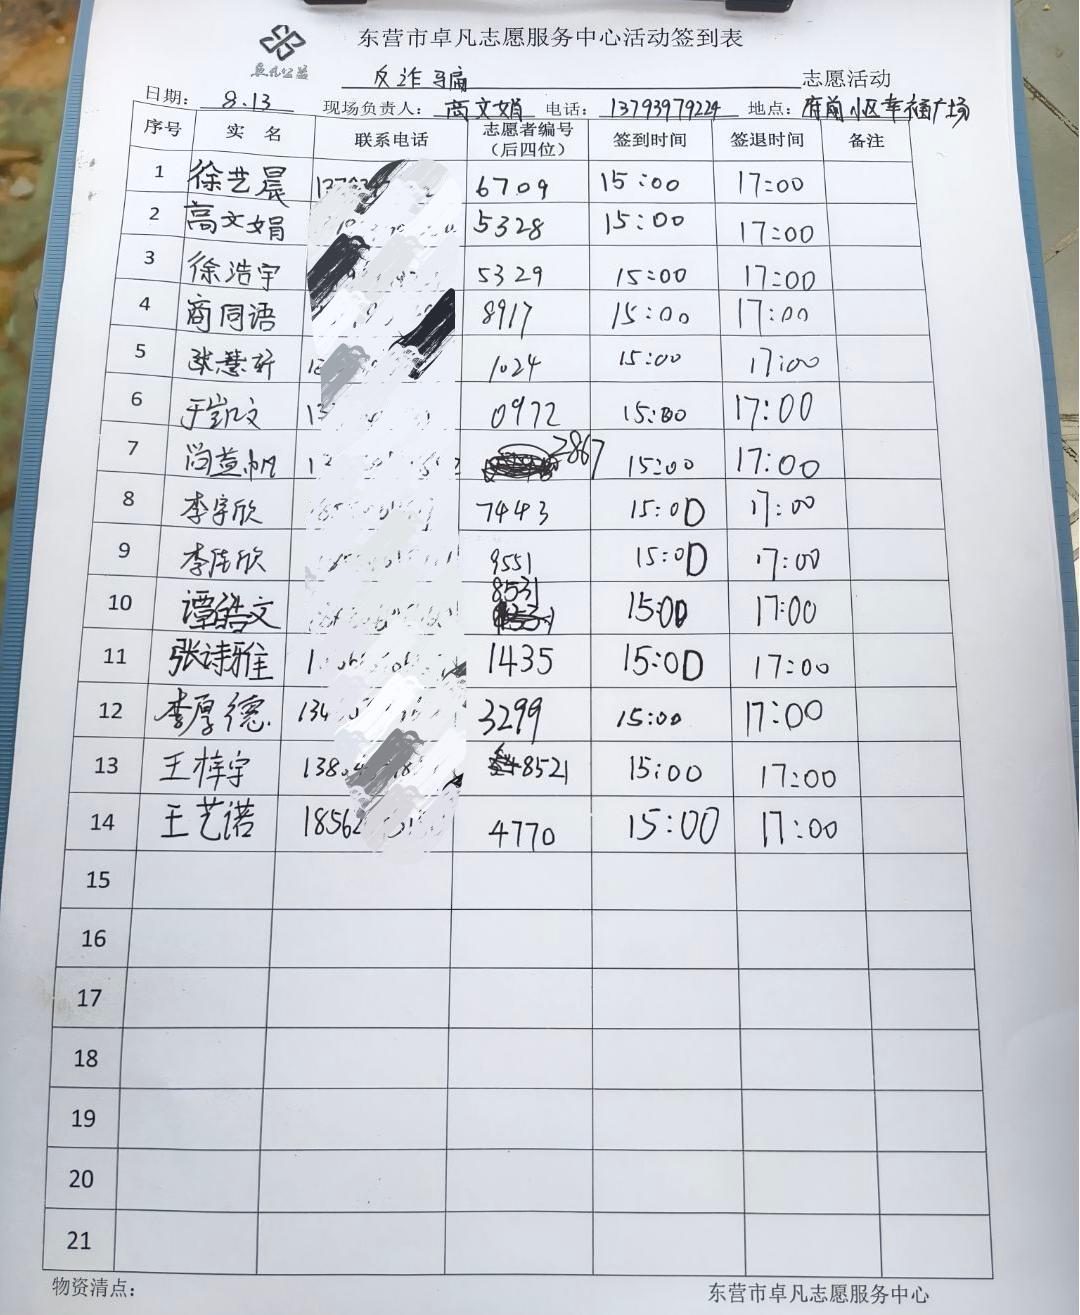 东营市卓凡志愿服务中心活动签到表
卓凡公益
反诈 志愿活动
日期: 8.13 现场负责人: 高文娟 电话: 13793979224 地点: 府前小区幸福广场
序号 实 名 联系电话 志愿者编号 签到时间 签退时间 备注
(后四位)
1 徐艺晨 6709 15:00 17:00
2 高文娟 5328 15:00 17:00
3 徐浩宇 5329 15:00 17:00
4 商同语 8917 15:00 17:00
5 张慧轩 1024 15:00 17:00
6 于凯文 0972 15:00 17:00
7 2867 15:00 17:00
8 李宇欣 7443 15:00 17:00
9 9551 15:00 17:00
10 谭皓文 8531 15:00 17:00
11 张诗雅 1435 15:00 17:00
12 李厚德 134 3299 15:00 17:00
13 王梓宇 138 8521 15:00 17:00
14 王艺诺 1856 4770 15:00 17:00
15
16
17
18
19
20
21
物资清点: 东营市卓凡志愿服务中心